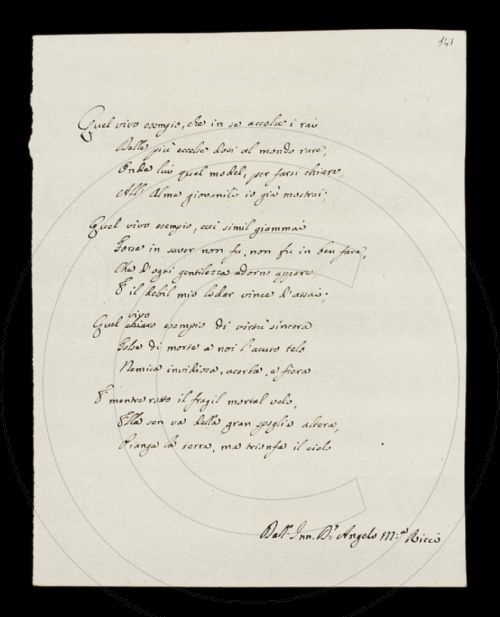 141
Quel vivo esempio, che in se accolse i rai
Delle più eccelse doti al mondo rare,
Onde lui qual model, per farsi chiare,
All' Alme giovanili io già mostrai;
Quel vivo esempio, cui simil giammai
Forse in saver non fu, non fu in ben fare,
Che d'ogni gentilezza adorno appare
E il debil mio lodar vince d'assai;
Quel vivo chiaro esempio di virtù sincera
Tolse di morte a noi l'acuto telo
Nemica invidiosa, acerba, e fiera
E mentre rotto il fragil mortal velo,
Ella sen va della gran spoglia altera,
Piange la terra, ma trionfa il cielo
Angelo M.ª Ricci